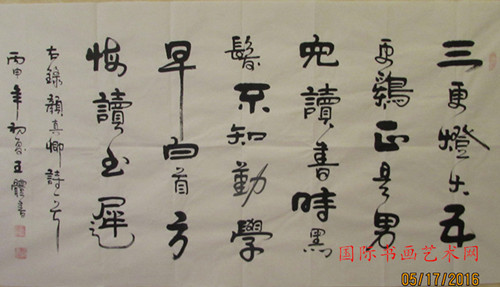 三更燈火五
更鷄正是男
兒讀書時黑
髮不知勤學
早白首方
悔讀書遲
右錄顏真卿詩一首
丙申年初夏書
国际书画艺术网
05/17/2016